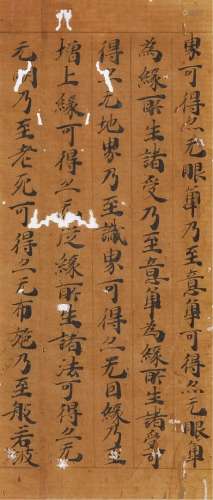 界可得亦无眼單乃至意單可得亦无眼單
為緣所生諸受乃至意單為緣所生諸受可
得亦无地界乃至識界可得亦无因緣乃至
增上緣可得亦无從緣所生諸法可得亦无
无明乃至老死可得亦无布施乃至般若波